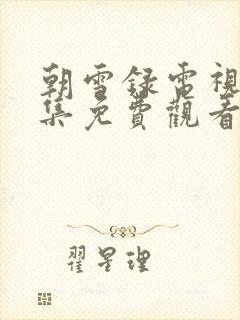 朝雪録電視
集免費觀看
翟星理